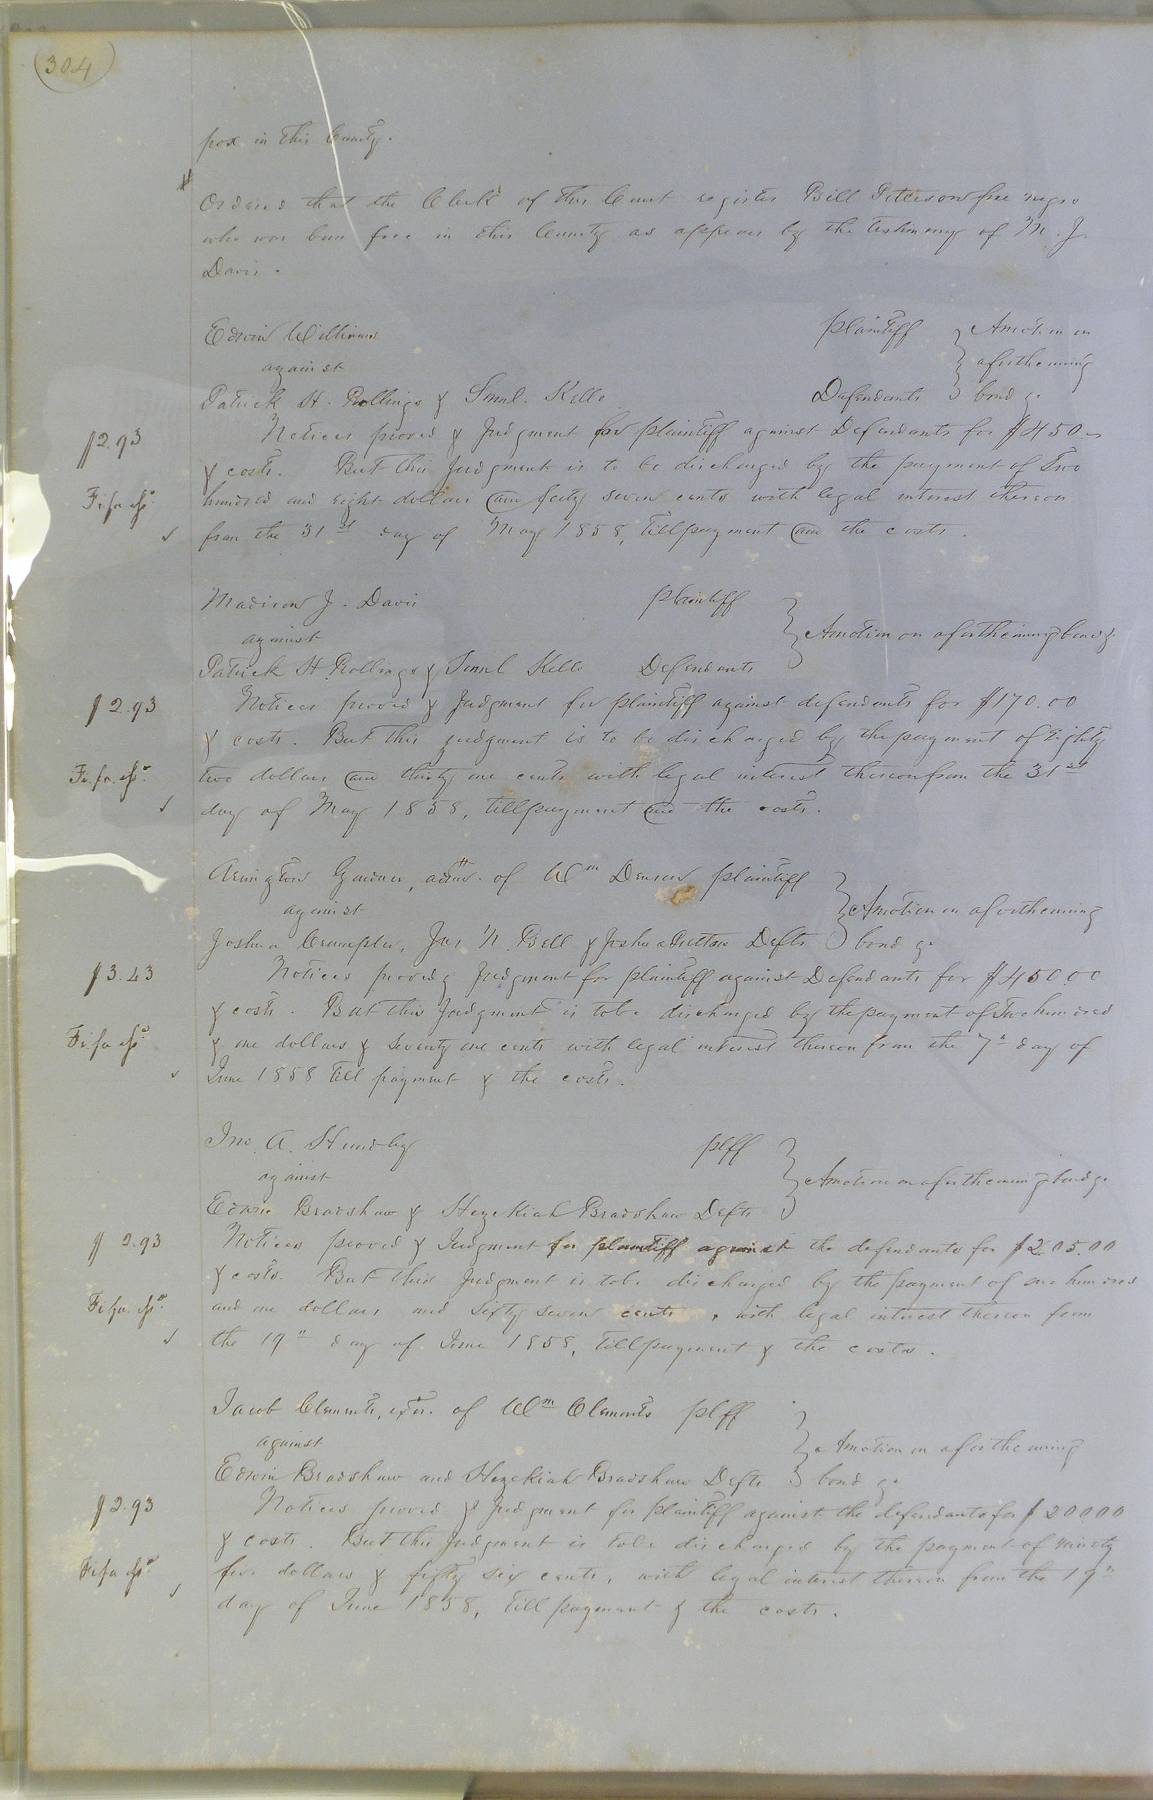 304
pox in this County.
Ordered that the Clerk of this Court register Bill Peterson free negro
who was born free in this County as appears by the testimony of M. J.
Davis.
Edwin Williams plaintiff } A motion on
against } a forthcoming
Patrick H. Rollings & Saml. Kello Defendants } bond &c
$2.93
Notices proved & Judgment for plaintiff against Defendants for $450.
& costs. But this Judgment is to be discharged by the payment of Two
Fi. fa.
hundred and eight dollars and fifty seven cents with legal interest thereon
from the 31st day of May 1858, till payment and the costs.
Madison J. Davis plaintiff
against } A motion on a forthcoming bond &c
Patrick H. Rollings & Saml Kello Defendants
$2.93
Notices proved & Judgment for plaintiff against defendants for $170.00
& costs. But this judgment is to be discharged by the payment of Eighty
Fi. fa.
two dollars and thirty one cents with legal interest thereon from the 31st
day of May 1858, till payment and the costs.
Arington Gardner, admr. of Wm Denson plaintiff
against } A motion on a forthcoming
Joshua Crumpler, Jas. N. Bell & Joshua Defts } bond &c
$3.43
Notices proved & Judgment for plaintiff against Defendants for $450.00
& costs. But this Judgment is to be discharged by the payment of Two hundred
Fi. fa.
& one dollars & seventy one cents with legal interest thereon from the 7th day of
June 1858 till payment & the costs.
Jno. A. Hundley plff
against } A motion on a forthcoming bond &c
Edwin Bradshaw & Hezekiah Bradshaw Defts
$2.93
Notices proved & Judgment for plaintiff against the defendants for $205.00
& costs. But this Judgment is to be discharged by the payment of one hundred
Fi. fa.
and one dollars and sixty seven cents, with legal interest thereon from
the 19th day of June 1858, till payment & the costs.
Jacob Clements, exr. of Wm Clements plff
against } A motion on a forthcoming
Edwin Bradshaw and Hezekiah Bradshaw Defts } bond &c
$2.93
Notices proved & Judgment for plaintiff against the defendants for $20000
& costs. But this Judgment is to be discharged by the payment of ninety
Fi. fa.
five dollars & fifty six cents, with legal interest thereon from the 19th
day of June 1858, till payment & the costs.